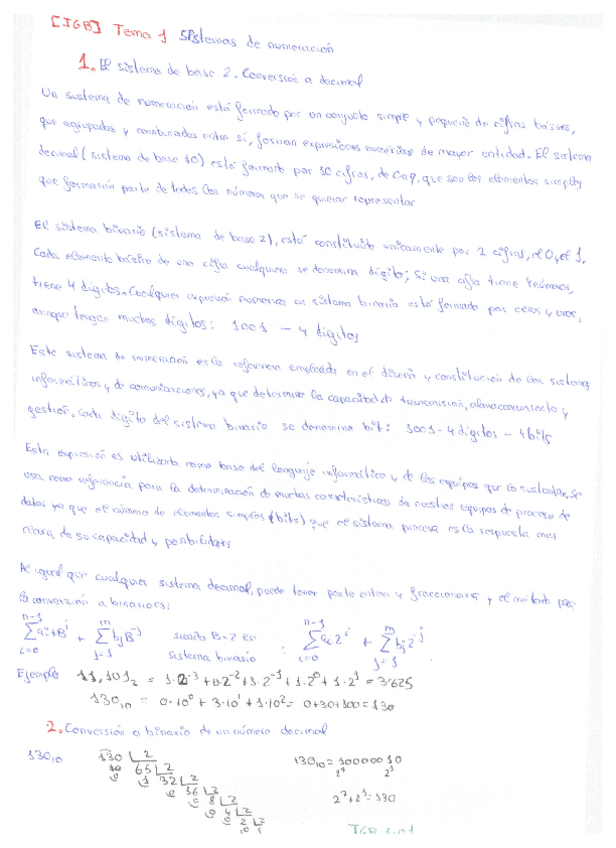 [IGB] Tema 1 Sistemas de numeración
1. El sistema de base 2. Conversión a decimal
Un sistema de numeración está formado por un conjunto simple y pequeño de cifras básicas,
que agrupadas y combinadas entre sí, forman expresiones numéricas de mayor entidad. El sistema
decimal (sistema de base 10) está formado por 10 cifras, de 0 a 9, que son los elementos simples
que formarán parte de todos los números que se quieran representar
El sistema binario (sistema de base 2), está constituido unicamente por 2 cifras, el 0 y el 1,
Cada elemento básico de una cifra cualquiera se denomina dígito; Si una cifra tiene
tiene 4 dígitos. Cualquier expresión numerica en sistema binario está formado por ceros y unos,
aunque tengan muchos dígitos: 1001 - 4 dígitos
Este sistema de numeración es la referencia empleada en el diseño y constitución de los sistemas
informáticos y de comunicaciones, ya que determina la capacidad de transmisión, almacenamiento y
gestión. Cada dígito del sistema binario se denomina bit: 1001 - 4 dígitos - 4 bits
Esta expresión es utilizada como base del lenguaje informático y de los equipos que lo sustentan, se
usa como referencia para la determinación de muchas características de nuestros equipos de proceso de
datos ya que el número de elementos simples (bits) que el sistema procesa es la respuesta mas
clara de su capacidad y posibilidades
Al igual que cualquier sistema decimal, puede tener parte entera y fraccionaria y el metodo para
la conversión a binario es:
n-1 ∑ i=0 aᵢ·Bⁱ + m ∑ j=1 bⱼB⁻ʲ siendo B=2 en sistema binario : n-1 ∑ i=0 aᵢ2ⁱ + m ∑ j=1 bⱼ2⁻ʲ
Ejemplo 11,101₂ = 1·2⁻³ + 0·2⁻² + 1·2⁻¹ + 1·2⁰ + 1·2¹ = 3'625
130₁₀ = 0·10⁰ + 3·10¹ + 1·10² = 0+30+100=130
2. Conversión a binario de un número decimal
130₁₀ 130 2 130₁₀ = 10000010
10 65 2 2⁷ 2¹
0 1 32 2
0 16 2 2⁷+2¹=130
0 8 2
0 4 2
0 2 2